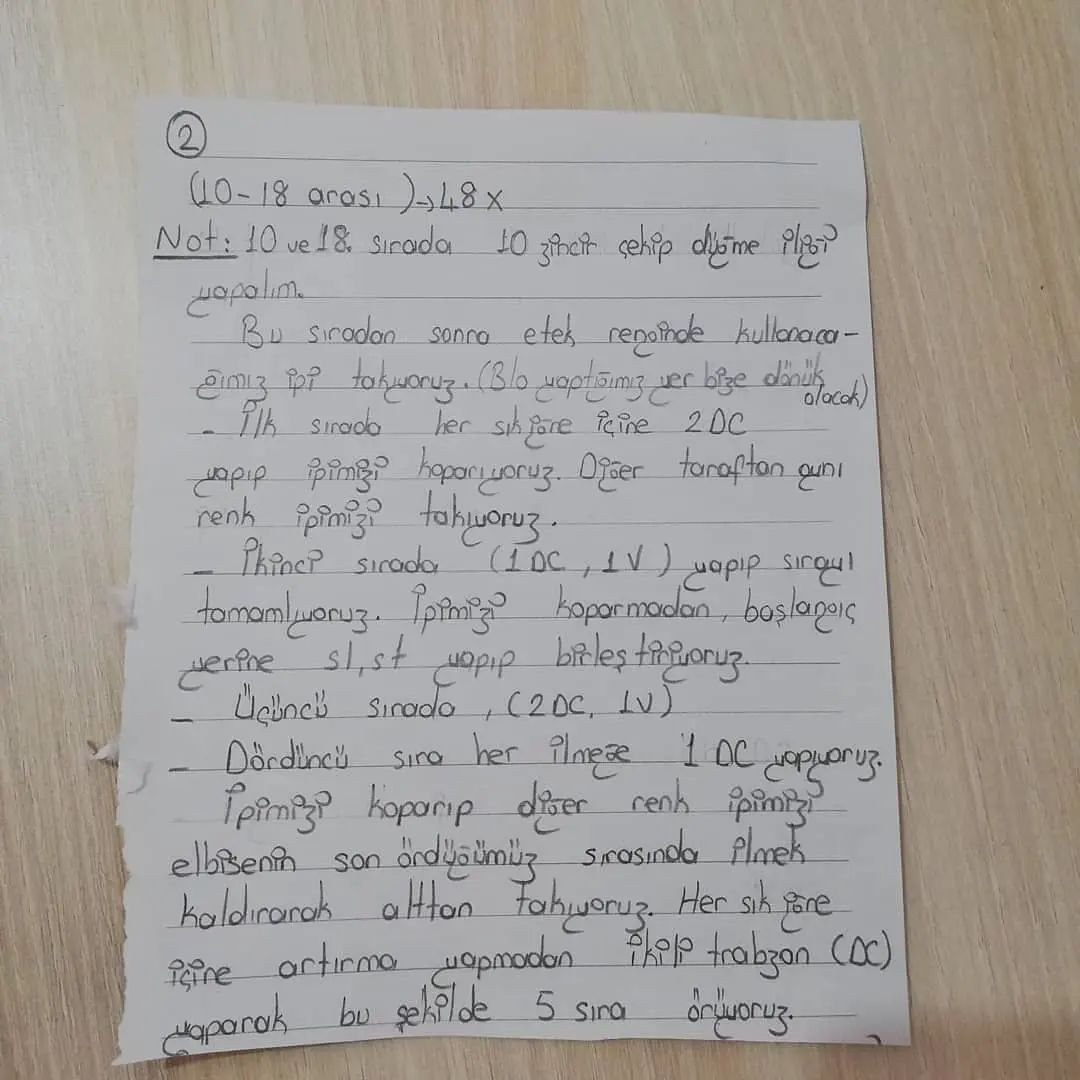 2
(10-18 arası )→48 x
Not: 10 ve 18. sırada 10 zincir çekip düğme iliği
yapalım.
Bu sıradan sonra etek renginde kullanaca-
ğımız ipi takıyoruz. (Blo yaptığımız yer bize dönük
olacak)
- İlk sırada her sık iğne içine 2 DC
yapıp ipimizi koparıyoruz. Diğer taraftan aynı
renk ipimizi takıyoruz.
- İkinci sırada (1 DC, 1V) yapıp sırayı
tamamlıyoruz. İpimizi koparmadan, başlangıç
yerine sl,st yapıp birleştiriyoruz.
- Üçüncü sırada, (2DC, 1V)
- Dördüncü sıra her ilmeğe 1 DC yapıyoruz.
İpimizi koparıp diğer renk ipimizi
elbisenin son ördüğümüz sırasında ilmek
kaldırarak alttan takıyoruz. Her sık iğne
içine artırma yapmadan ikili trabzan (DC)
yaparak bu şekilde 5 sıra örüyoruz.